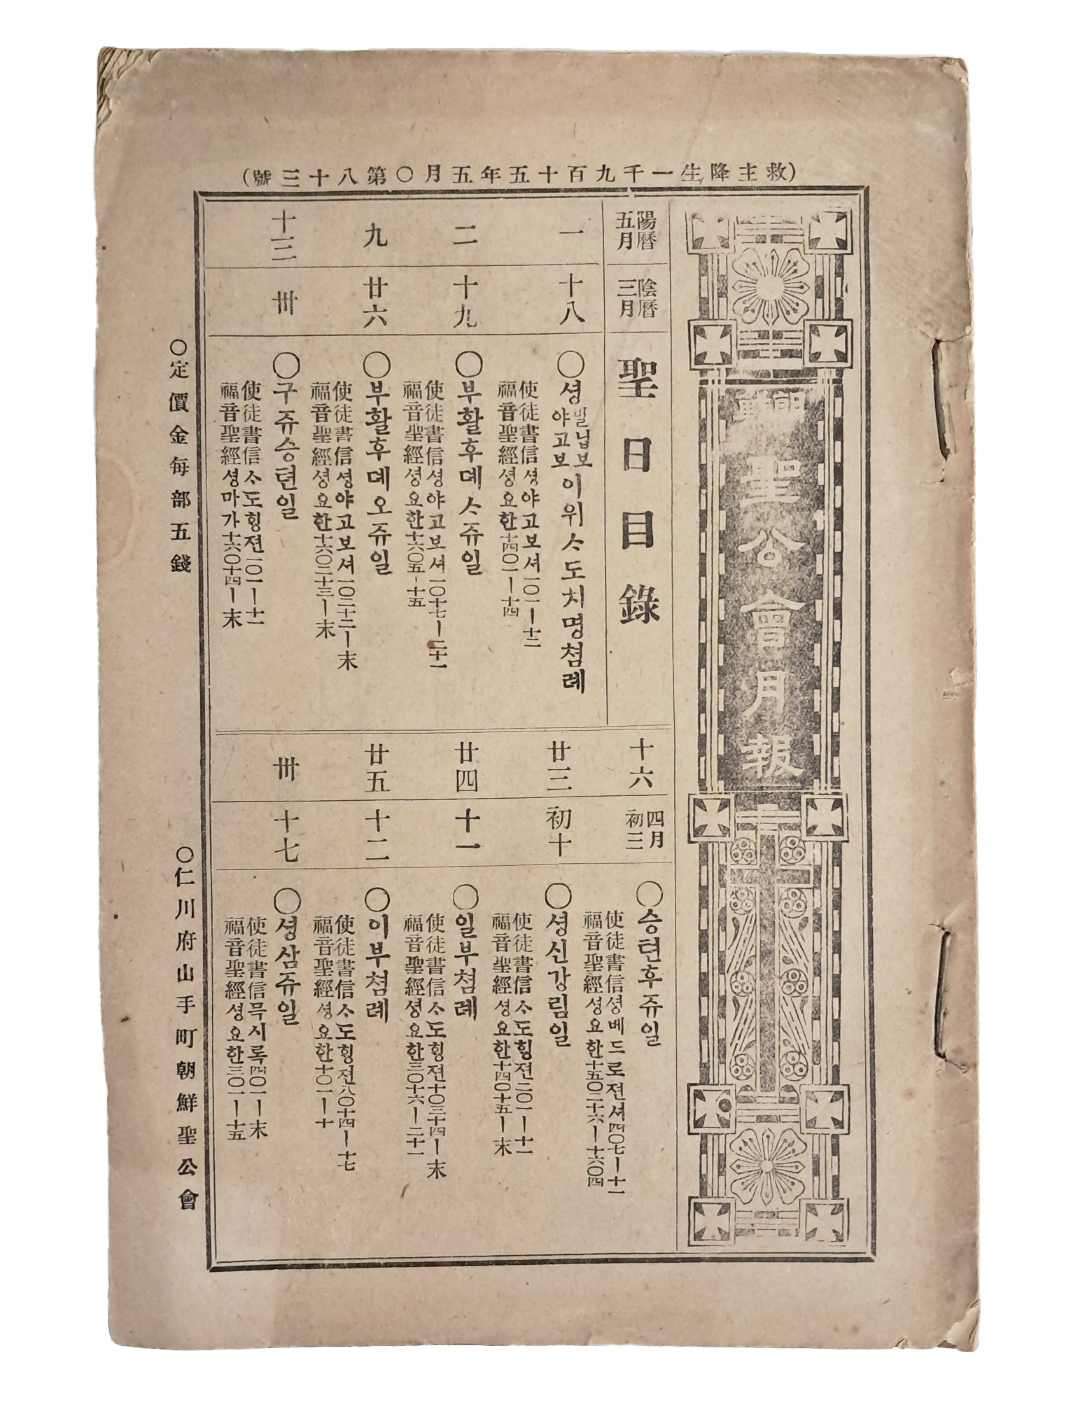 (救主降生一千九百十五年五月○第八十三號)
聖公會月報
陽曆五月
陰曆三月
聖日目錄
一
十八
○셩빌닙보야고보이위ᄉ도치명쳠례
使徒書信셩야고보셔一○一ㅡ十二
福音聖經셩요한十四○一ㅡ十四
二
十九
○부활후뎨ᄉ쥬일
使徒書信셩야고보셔一○十七ㅡ二十一
福音聖經셩요한十六○五ㅡ十五
九
廿六
○부활후뎨오쥬일
使徒書信셩야고보셔一○二十二ㅡ末
福音聖經셩요한十六○二十三ㅡ末
十三
卅
○구쥬승텬일
使徒書信ᄉ도힝젼一○一ㅡ十一
福音聖經셩마가十六○十四ㅡ末
十六
四月初三
○승텬후쥬일
使徒書信셩베드로젼셔四○七ㅡ十一
福音聖經셩요한十五○二十六ㅡ十六○四
廿三
初十
○셩신강림일
使徒書信ᄉ도힝젼二○一ㅡ十一
福音聖經셩요한十四○十五ㅡ末
廿四
十一
○일부쳠례
使徒書信ᄉ도힝젼十○三十四ㅡ末
福音聖經셩요한三○十六ㅡ二十一
廿五
十二
○이부쳠례
使徒書信ᄉ도힝젼八○十四ㅡ十七
福音聖經셩요한十○一ㅡ十
卅
十七
○셩삼쥬일
使徒書信믁시록四○一ㅡ末
福音聖經셩요한三○一ㅡ十五
○定價金每部五錢
○仁川府山手町朝鮮聖公會